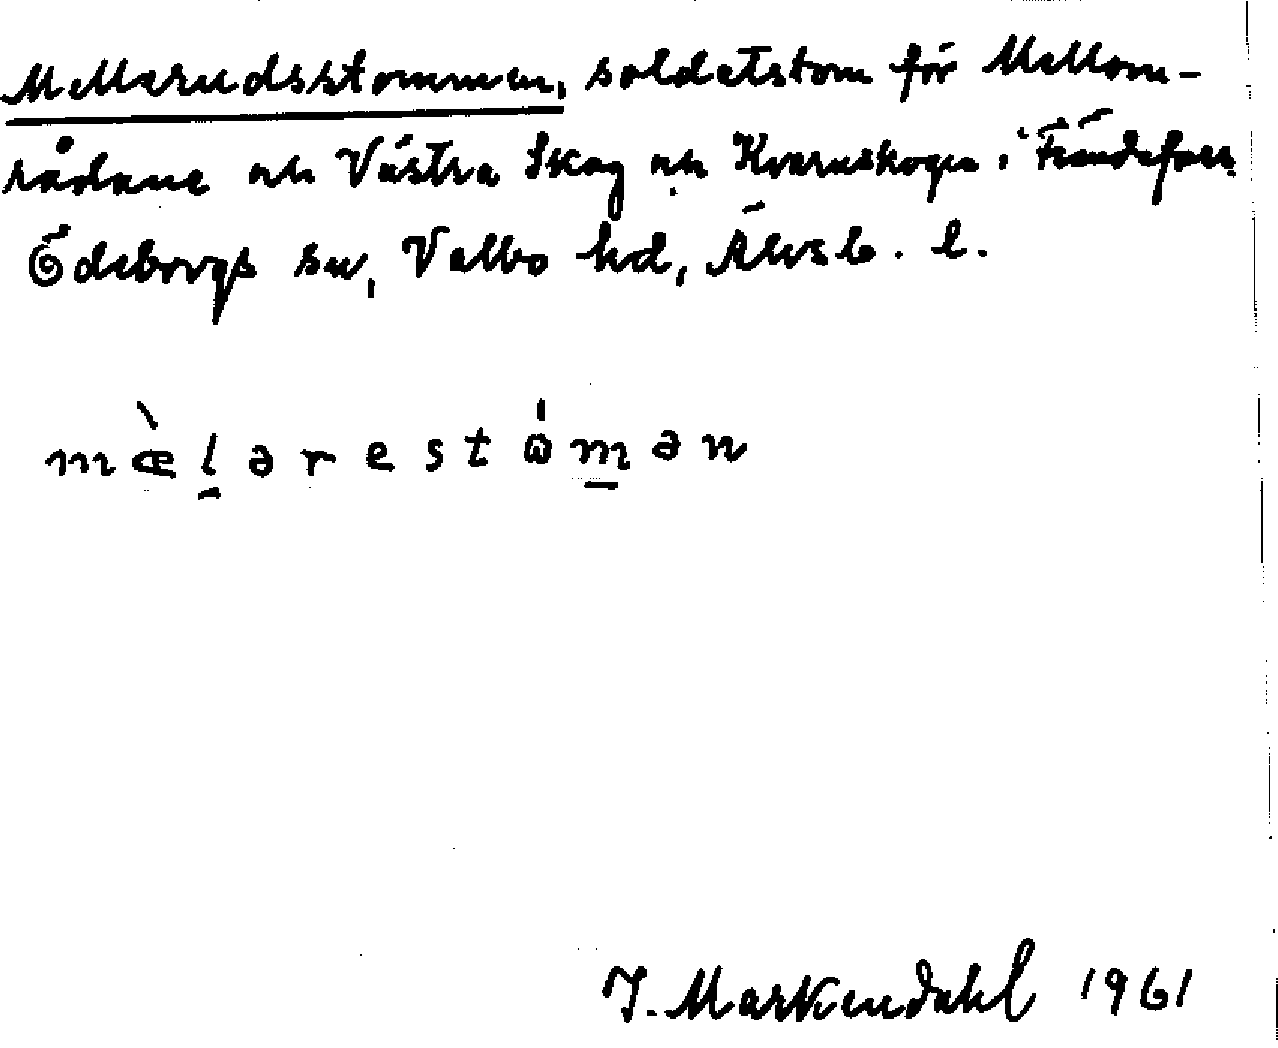 Mellerudsstommen, soldatstom för Mellom-
rådane och Västra Skog och Kvarnskogen i Frändefors
Ödeborgs sn, Valbo hd, Älvsb. l.
mæ̀lərestɷ́mən
J. Markendahl 1961